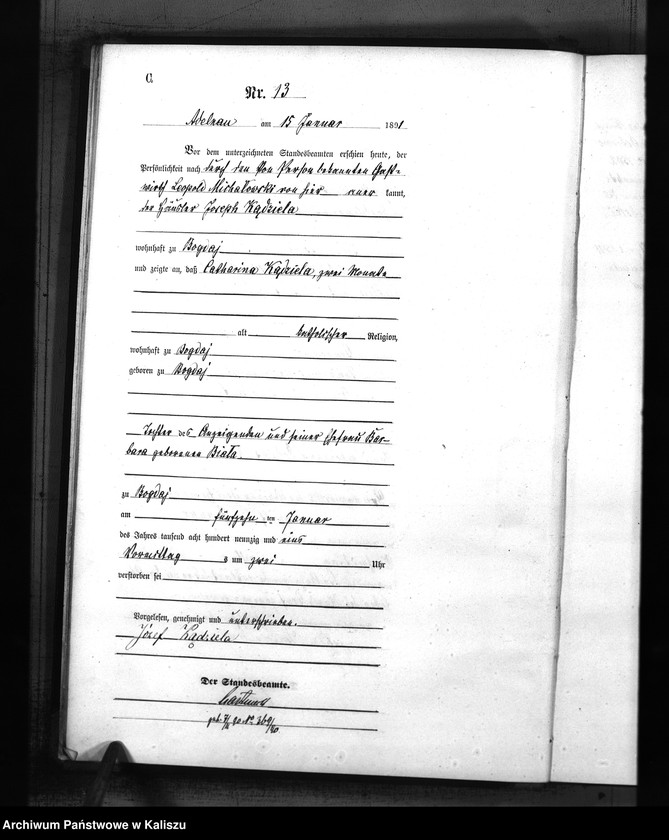 C.
Nr. 13
Adelnau am 15 Januar 1891
Vor dem unterzeichneten Standesbeamten erschien heute, der
Persönlichkeit nach durch den von Person bekannten Gast-
wirth Leopold Michałowski von hier aner kannt,
der Häusler Joseph Kądziela
wohnhaft zu Bogdaj
und zeigte an, daß Catharina Kądziela, zwei Monate
alt katholischer Religion,
wohnhaft zu Bogdaj
geboren zu Bogdaj
Tochter des Anzeigenden und seiner Ehefrau Bar-
bara geborenen Biała
zu Bogdaj
am fünfzehn ten Januar
des Jahres tausend acht hundert neunzig und eins
Vormittag s um zwei Uhr
verstorben sei
Vorgelesen, genehmigt und unterschrieben.
Józef Kądziela
Der Standesbeamte.
geb.
Archiwum Państwowe w Kaliszu